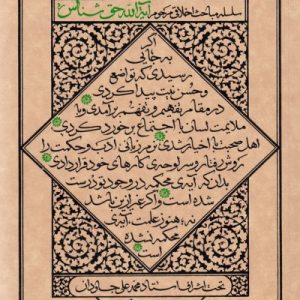 سلسله مباحث اخلاقی مرحوم آیة الله حق شناس
اگر
به جایی
رسیدی که تواضع
و حسن نیت پیدا کردی
در مقام تفهیم و تفهم برآمدی و با
ملایمت لسان با اجتماع برخورد کردی
اهل صحبت با اخیار شدی زمزبانی ادب و حکمت را
روش رفتار و سرلوحه‌ی کارهای خود قرار دادی
بدان که آیه‌ی محکمه در وجود تو درست
شده است و اگر غیر از این باشد
نه، هنوز علمت، آیه‌ی
محکمه نشده
است
تحت اشراف استاد محمد علی جاودان